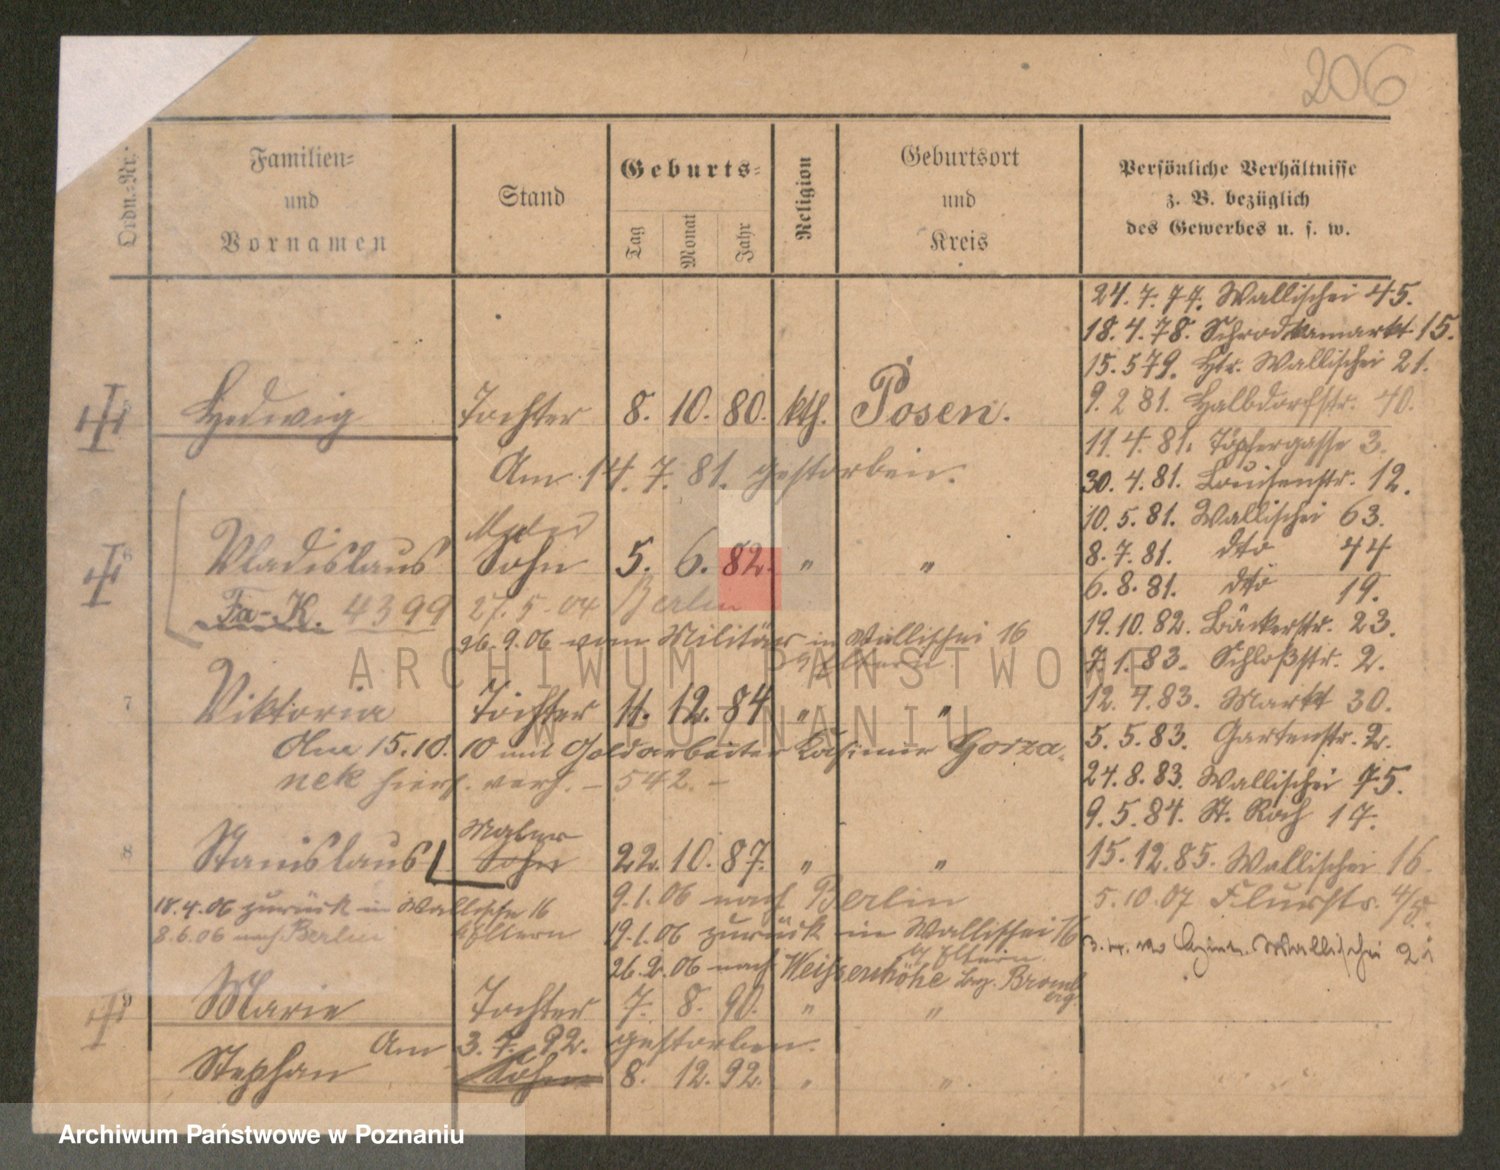 206
Ordn.-Nr.
Familien-
und
Vornamen
Stand
Geburts-
Tag
Monat
Jahr
Religion
Geburtsort
und
Kreis
Persönliche Verhältnisse
z. B. bezüglich
des Gewerbes u. s. w.
24. 7. 77. Wallischei 45.
18. 4. 78. Schrodkamarkt 15.
15. 5 79. Htr. Wallischei 21.
9. 2 81. Halbdorfstr. 40.
11. 4. 81. Töpfergasse 3.
30. 4. 81. Louisenstr. 12.
10. 5. 81. Wallischei 63.
8. 7. 81. dto 44
6. 8. 81. dto 19.
19. 10. 82. Bäckerstr. 23.
7. 1. 83. Schloßstr. 2.
12. 4. 83. Markt 30.
5. 5. 83. Gartenstr. 2.
24. 8. 83. Wallischei 75.
9. 5. 84. St. Roch 17.
15. 12. 85. Wallischei 16.
5. 10. 07 Flurstr.
Wallischei
Hedwig Tochter 8. 10. 80. kth. Posen.
Am 14. 7. 81. gestorben.
6
Wladislaus Sohn 5. 6. 82. " "
Fa-K. 4399 27. 5. 04 Berlin
26. 9. 06 vom Militär in Wallischei 16
b/Eltern
7 Viktoria Tochter 11. 12. 84. " "
15. 10. 10 mit Goldarbeiter Kasimir Gorza-
nek hiers. verh. – 542. –
Maler
8 Stanislaus Sohn 22. 10. 87. " "
9. 1. 06 nach Berlin
18. 4. 06 zurück in Wallische 16
b/Eltern
8. 6. 06 nach Berlin
19. 1. 06 zurück in Wallischei 16
b/ Eltern.
26. 2. 06 nach Weissenhöhe bz. Bromb
erg.
9 Marie Tochter 7. 8. 90. " "
Am 3. 7. 92. gestorben.
Stephan Sohn 8. 12. 92. " "
ARCHIWUM PAŃSTWOWE
W POZNANIU
Archiwum Państwowe w Poznaniu